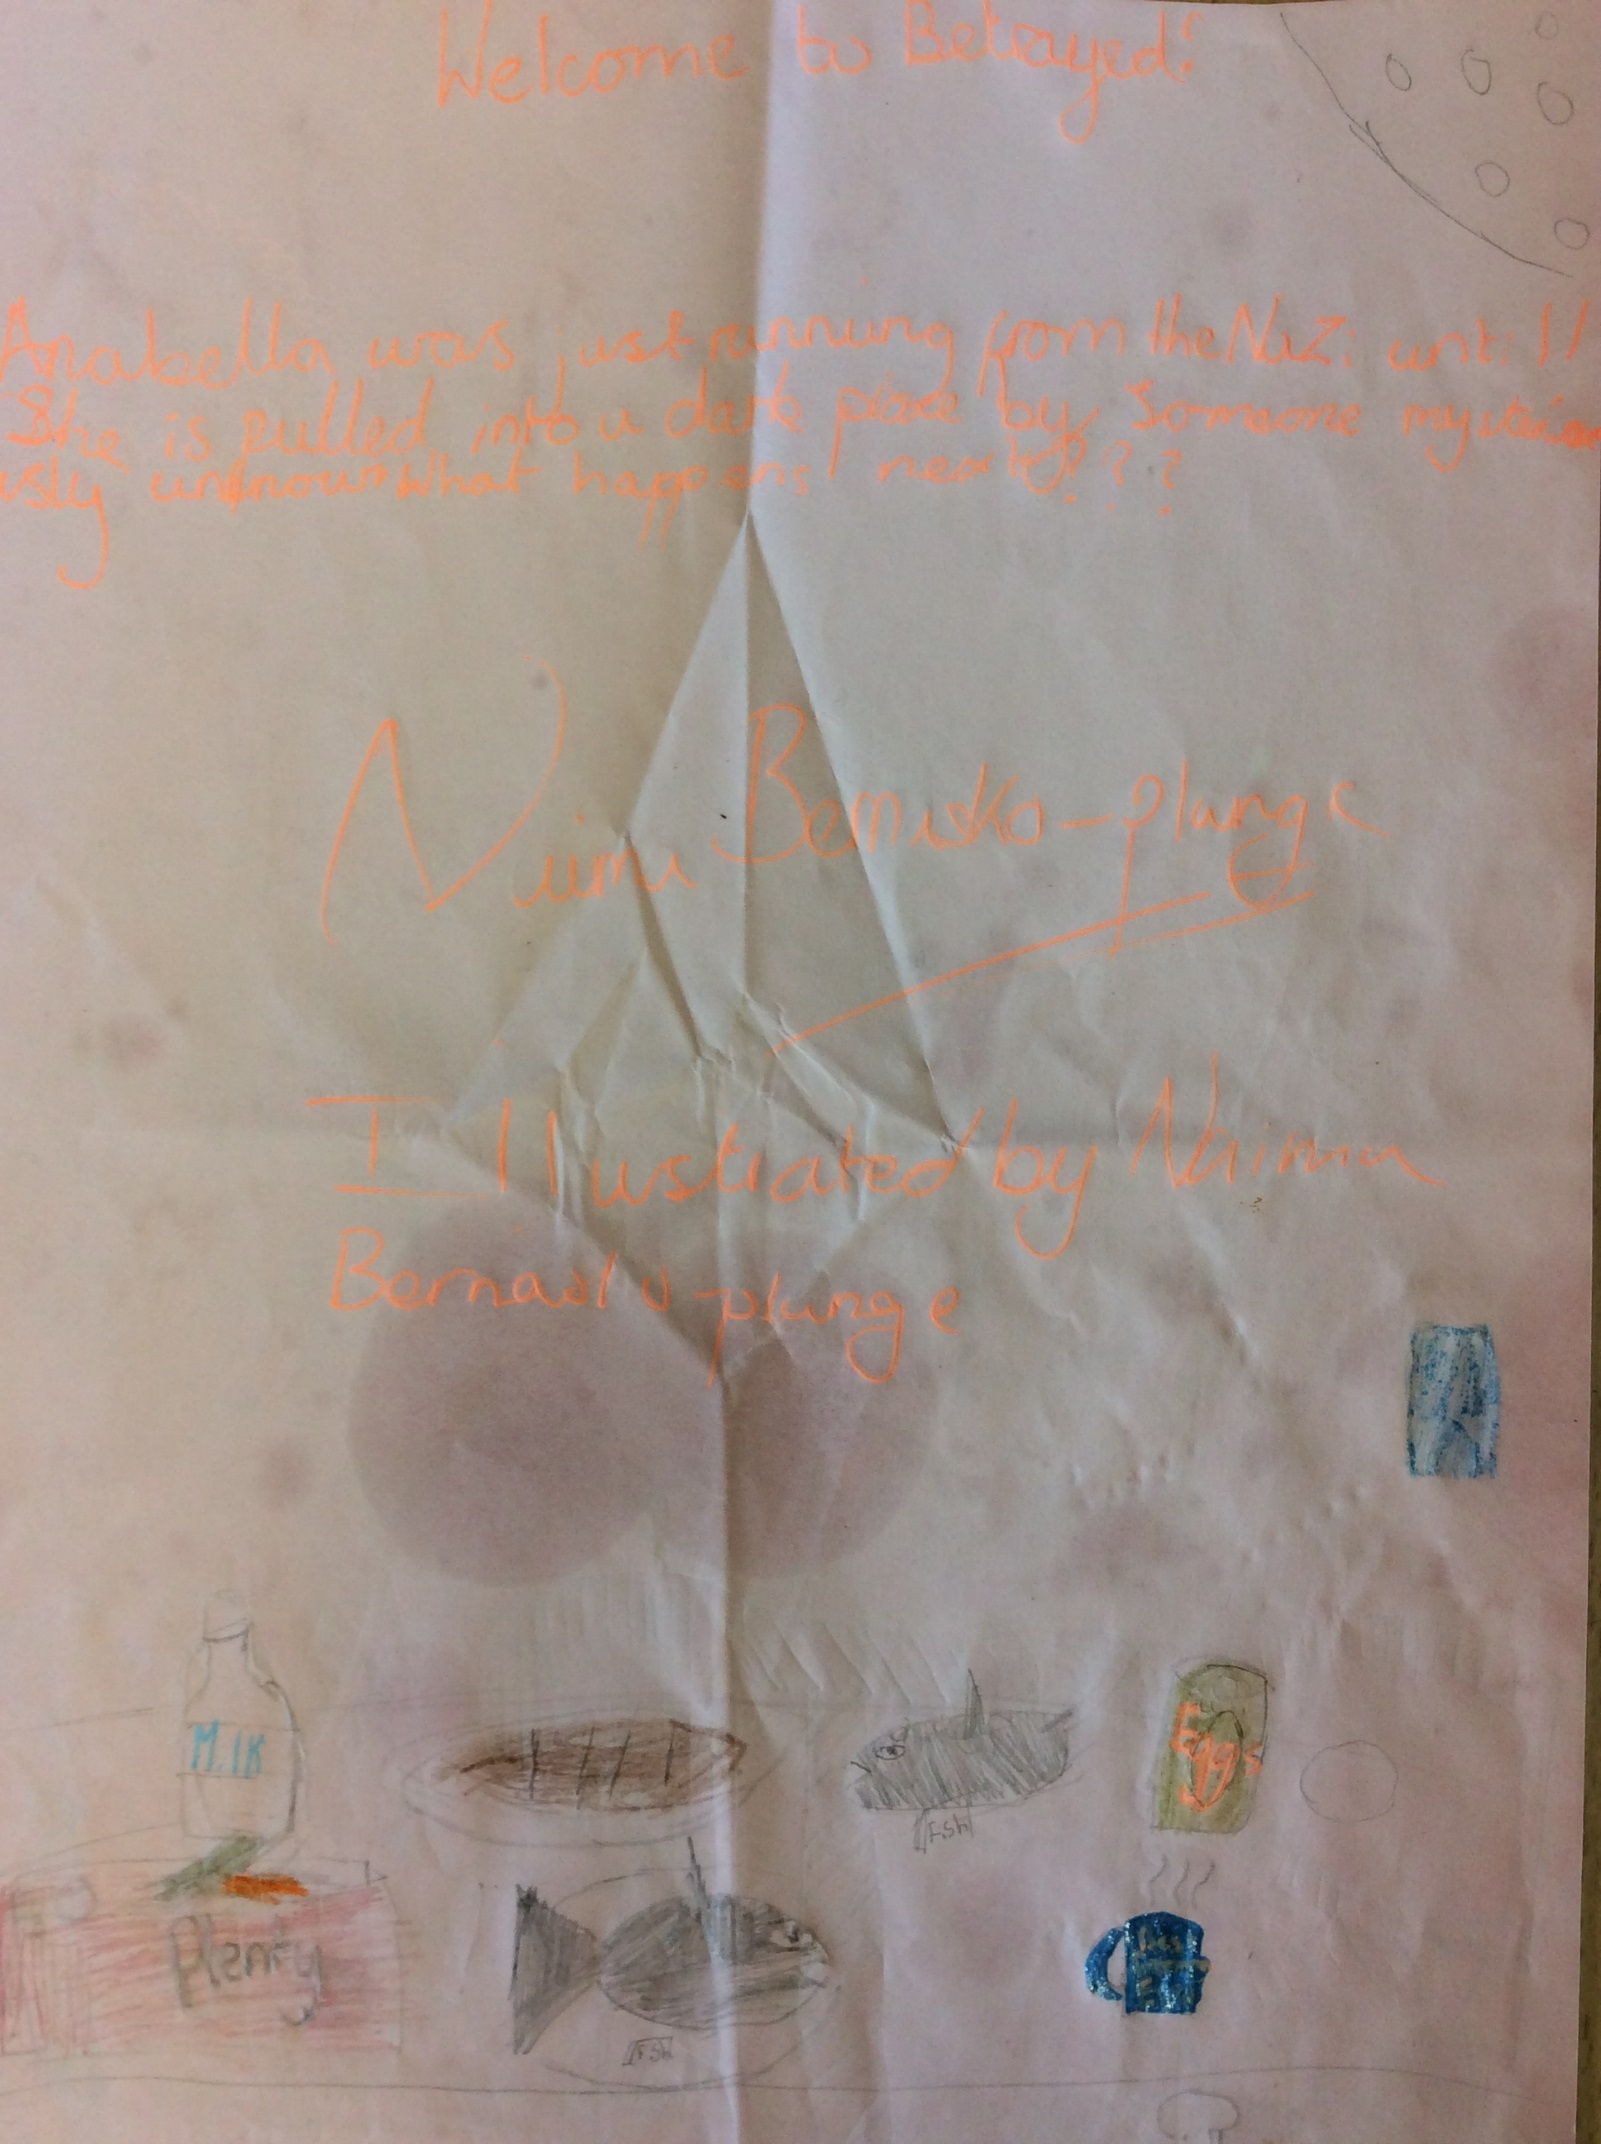 Welcome to Betrayed!
Anabella was just running from the Nazi until
She is pulled into a dark place by Someone mysterio
usly unknown What happens next????
-plunge
Illustrated by Naima
-plunge
Milk
Eggs
Fish
Plenty
Fish